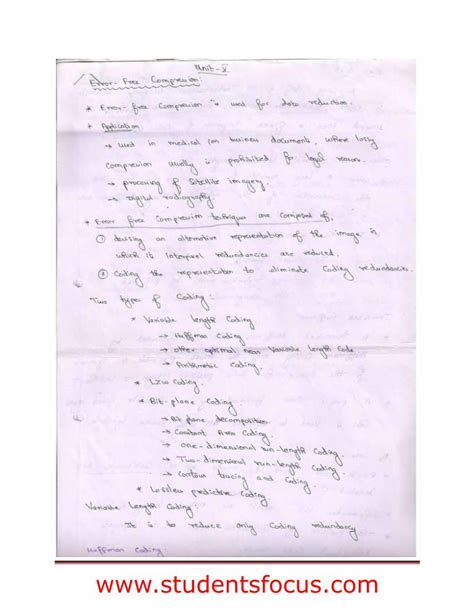 Unit - V
Error - Free Compression:
* Error - free Compression is used for data reduction.
* Application
→ used in medical (or) business documents, where lossy
Compression usually is prohibited for legal reasons.
→ processing of Satellite imagery.
→ Digital radiography.
* Error free Compression techniques are composed of,
① devising an alternative representation of the image in
which its interpixel redundancies are reduced.
② Coding the representation to eliminate Coding redundancies.
Two types of Coding:
* Variable length Coding
→ Huffman Coding
→ other optimal near Variable length Code
→ Arithmetic Coding.
* LZW Coding.
* Bit-plane Coding.
→ Bit plane decomposition
→ Constant Area Coding
→ one-dimensional run-length Coding.
→ Two-dimensional run-length Coding.
→ Contour tracing and Coding.
* Lossless predictive Coding.
Variable Length Coding:
It is to reduce only Coding redundancy
Huffman Coding:
www.studentsfocus.com